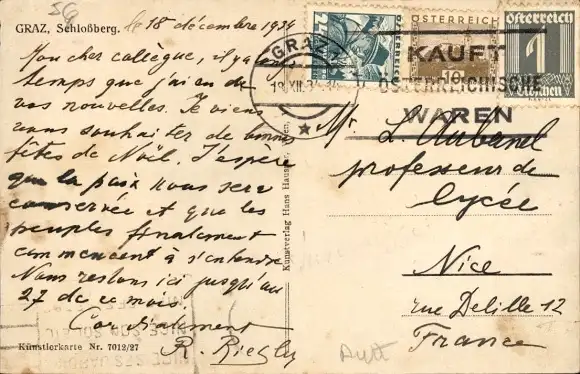 56
GRAZ, Schloßberg. le 18 décembre 1934
Mon cher collègue, il y a long
temps que j'ai eu de
vos nouvelles. Je viens
vous souhaiter de bonnes
fêtes de Noël. J'espère
que la paix nous sera
conservée et que les
peuples finalement
commencent à s'entendre.
Nous restons ici jusqu'au
27 de ce mois.
Cordialement
R. Riegler
Künstlerkarte Nr. 7012/27
Kunstverlag Hans Haus
GRAZ
18.XII.34
ÖSTERREICH
Österreich
1
Groschen
KAUFT
ÖSTERREICHISCHE
WAREN
Mr. L. Aubanel
professeur de
lycée
Nice
rue Delille 12
France